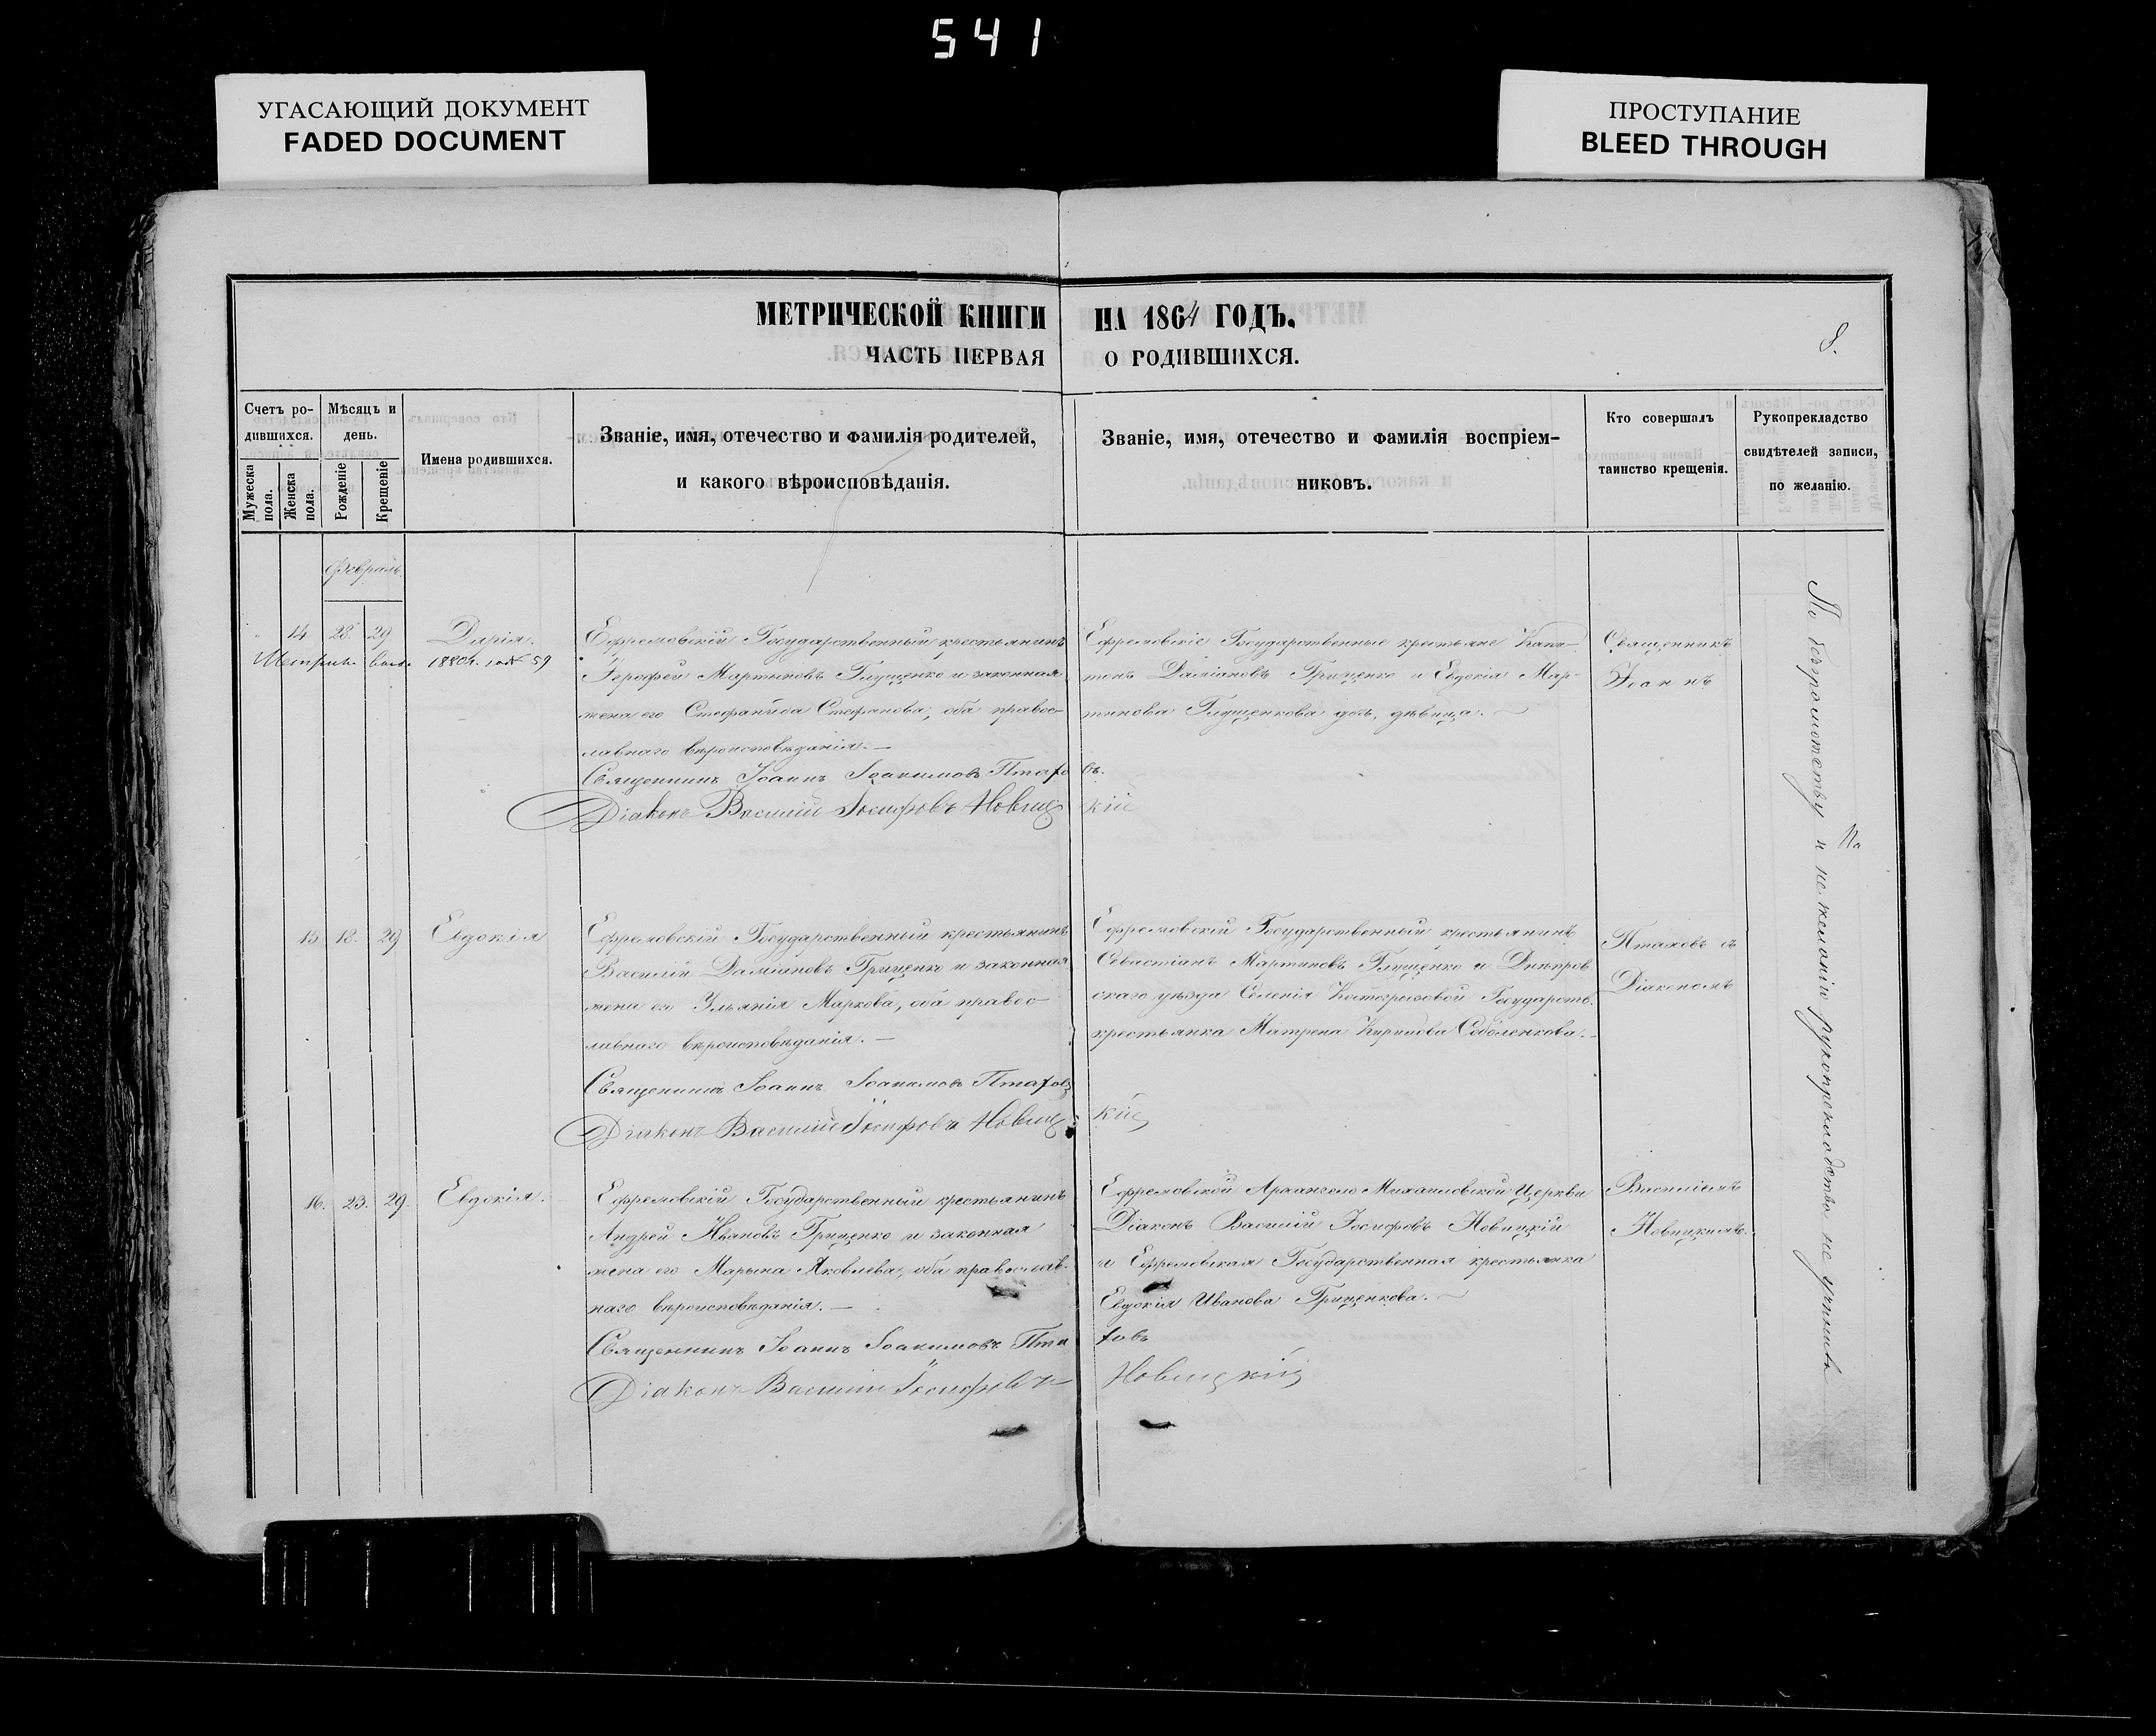 541
УГАСАЮЩИЙ ДОКУМЕНТ
FADED DOCUMENT
ПРОСТУПАНИЕ
BLEED THROUGH
МЕТРИЧЕСКОЙ КНИГИ НА 1864 ГОДЪ.
ЧАСТЬ ПЕРВАЯ О РОДИВШИХСЯ.
8.
Счетъ ро-
дившихся.
Мужеска пола.
Женска пола.
Мѣсяцъ и
день.
Рожденіе
Крещеніе
Имена родившихся.
Званіе, имя, отечество и фамилія родителей,
и какого вѣроисповѣданія.
Званіе, имя, отечество и фамилія воспріем-
никовъ.
Кто совершалъ
таинство крещенія.
Рукоприкладство
свидѣтелей записи,
по желанію.
Февраль
14 28. 29. Дарія.
1880
Ефремовскій Государственный крестьянинъ
Мартыновъ Глущенко и законная
жена его Стефанида Стефанова, оба правос-
лавнаго вѣроисповѣданія.—
Священникъ Іоаннъ Іоакимовъ Птахо въ.
Діаконъ Василій Іосифовъ Новиц кій
Ефремовскіе Государственные крестьяне Капи-
тонъ Даміановъ Гриценко и Евдокія Мар-
тинова Глущенкова дочь, дѣвица.
Священникъ
Іоаннъ
15 18. 29 Евдокія
Ефремовскій Государственный крестьянинъ
Василій Даміановъ Гриценко и законная
жена его Ульянія Маркова, оба правос-
лавнаго вѣроисповѣданія.—
Священникъ Іоаннъ Іоакимовъ Птаховъ
Діаконъ Василій Іосифовъ Новиц кій
Ефремовскій Государственный крестьянинъ
Севастіанъ Мартиновъ Глущенко и Днѣпров
скаго уѣзда Селенія Костогризовой Государств.
крестьянка Матрена Кирилова Соболенкова.
Птаховъ съ
Діакономъ
16. 23. 29. Евдокія.
Ефремовскій Государственный крестьянинъ
Андрей Ивановъ Гриценко и законная
жена его Марьяна Яковлева, оба православ-
наго вѣроисповѣданія.—
Священникъ Іоаннъ Іоакимовъ Пта ховъ
Діаконъ Василій Іосифовъ Новицкій
Ефремовской Архангело Михаиловской Церкви
Діаконъ Василій Іосифовъ Новицкій
и Ефремовская Государственная крестьянка
Евдокія Иванова Гриценкова.
Василіемъ
Новицкимъ.
По безграмотству и нежеланію рукоприкладства не учинили